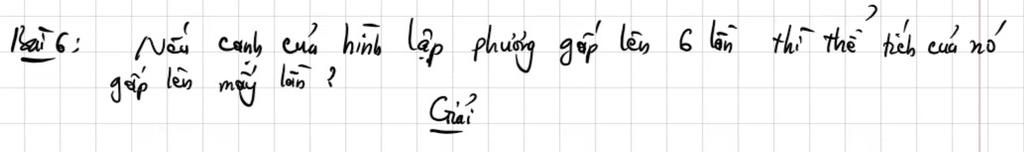 Bài 6: Nếu cạnh của hình lập phương gấp lên 6 lần thì thể tích của nó
gấp lên mấy lần?
Giải